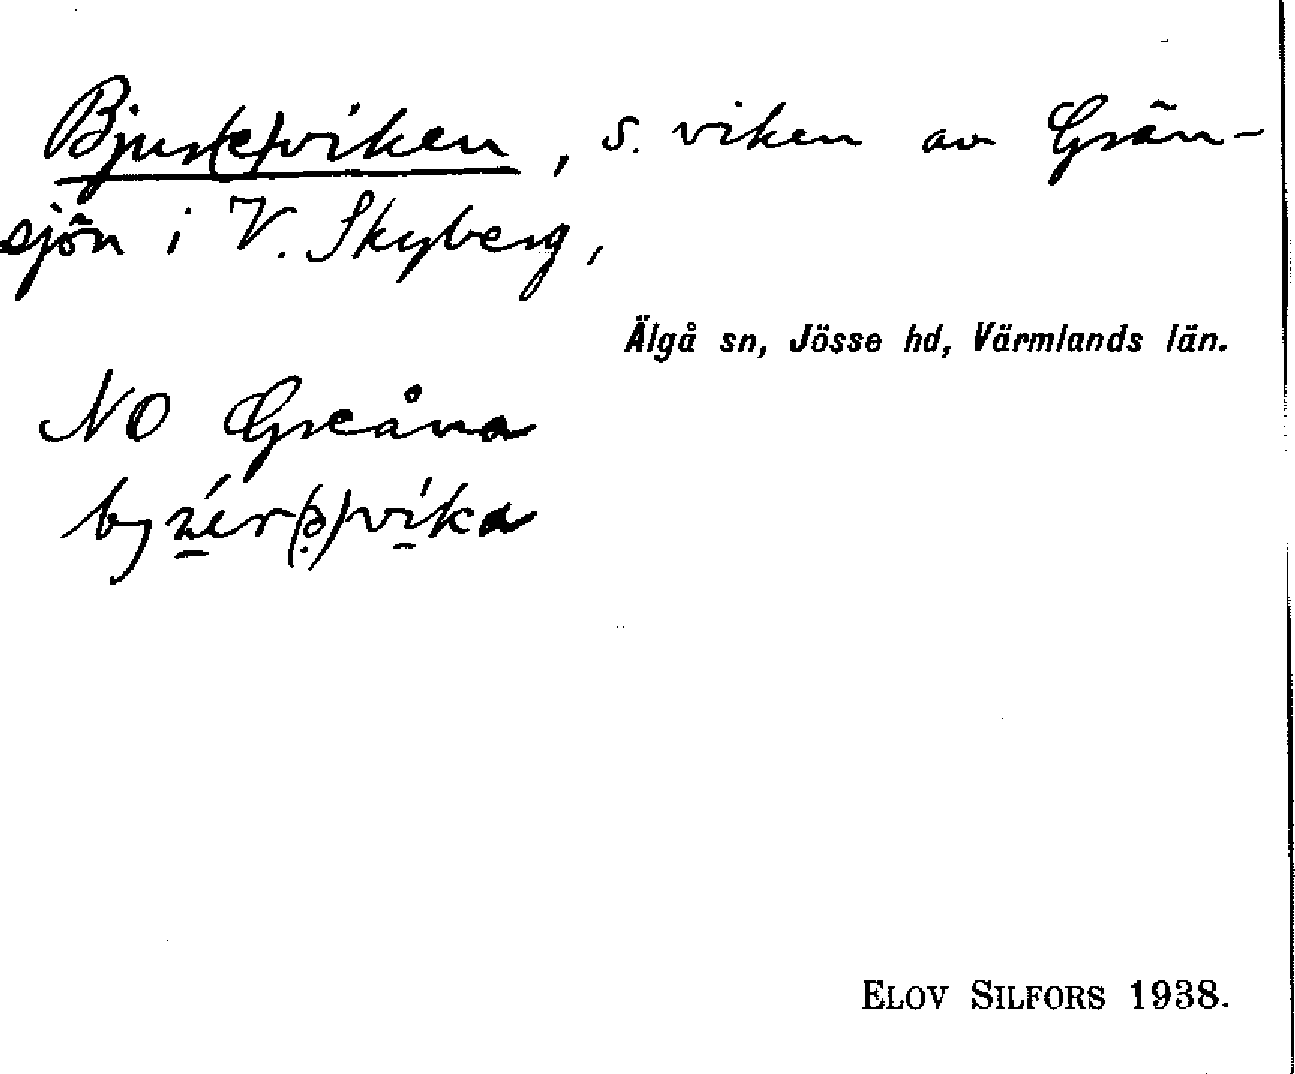 Bjur(e)viken, s. viken av Grän-
sjön i V. Skyberg,
Älgå sn, Jösse hd, Värmlands län.
NO Greåna
ELOV SILFORS 1938.